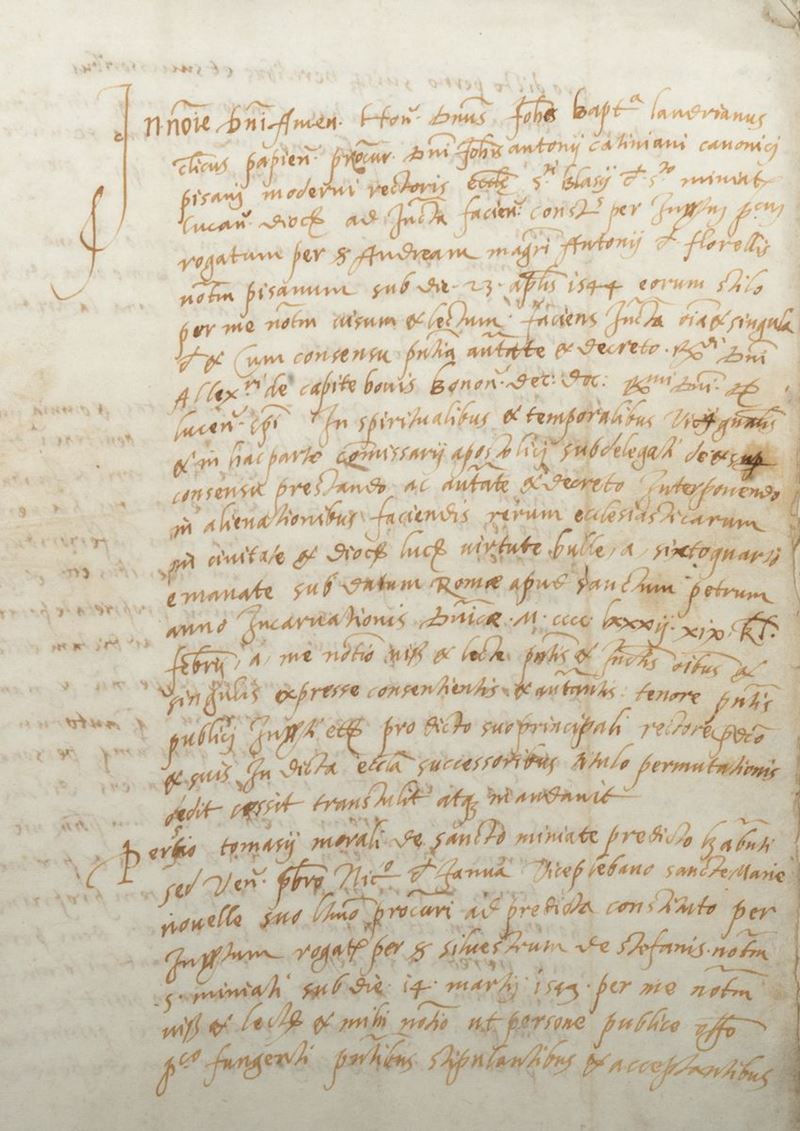 In noi͞e Dn͞i Amen. Hon: Dnu͞s Joh͞s Bapt.ᵃ landrianus
cl͞icus papien: procur. Dn͞i Joh͞is antonij catiniani canonici
pisani moderni rectoris eccl͞e s.ᵗⁱ Blasij d s.ᵗᵒ miniat
lucan: dioc ad Jnf͞ta facien: const.ˢ per
rogatum per s Andream magr͞i Antonij d florellis
not͞m pisanum sub die 23 apl͞is 1544 eorum stilo
per me not͞m uisum & lectum. faciens Jnf͞ta oi͞a & singula
d & Cum consensu pn͞tia auc͞tate & decreto. R.ᵈⁱ Dn͞i
Allex.ʳⁱ de capite bouis Bonon: dec: doc: R.ᵐⁱ Dn͞i. D.
lucen: ep͞i In spiritualibus & temporalibus Vic gn͞alis
& in hac parte comissarij apostolicj subdelegati de &
consensu prestando ac auc͞tate & decreto Interponendo
in alienationibus faciendis rerum ecclesiasticarum
in ciuitate & dioc luc uirtute bulle, a, sixto quarto
emanate sub datum Romæ apud sanctum petrum
anno Incarnationis Dn͞icæ .M. cccc lxxxij. xix. kl.
febr͞ij, a, me not͞io uiss & lecte pn͞tis & Jnf͞tis oi͞bus &
singulis expresse consentientis & auc͞tantis tenore pn͞tis
publicj etc pro dicto suo principali rectore pd͞co
& suis In dicta eccl͞a successoribus titulo permutationis
dedit cessit transtulit atq mandauit
Per tomasij morali de sancto miniate predicto
sed Ven: pb͞ro Nic.ᵒ d Janua Viceplebano sancte Marie
nouelle suo procur͞i ad predicta constituto per
rogat per s siluestrum de stefanis not͞m
s. miniati sub die 14 martij per me not͞m
uiss & lect & mihi not͞io ut persone publice off͞o
p.ᶜᵒ fungenti pn͞tibus stipulantibus & acceptantibus